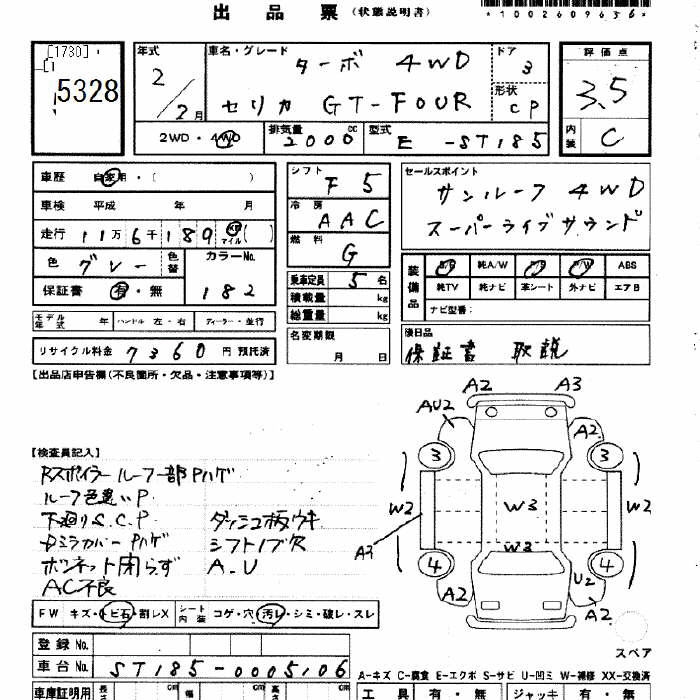 出品票 (状態説明書)
*1002609656*
[1730]
5328
年式 2/2月
車名・グレード ターボ 4WD
セリカ GT-FOUR
ドア 3
形状 CP
評価点 3.5
内装 C
2WD・4WD 排気量 2000 cc 型式 E-ST185
車歴 自家用・( )
車検 平成 年 月
走行 11万6千189 km マイル ( )
色 グレー 色替 カラーNo. 182
保証書 有・無
モデル年式 年 ハンドル 左・右 ディーラー・並行
リサイクル料金 7360 円 預託済
シフト F5
冷房 AAC
燃料 G
乗車定員 5 名
積載量 kg
総重量 kg
名変期限 月 日
セールスポイント
サンルーフ 4WD
スーパーライブサウンド
装備品 S/R 純A/W P/S P/W ABS
純TV 純ナビ 革シート 外ナビ エアB
ナビ型番:
後日品
保証書 取説
[出品店申告欄(不良箇所・欠品・注意事項等)]
[検査員記入]
Rスポイラー ルーフ一部Pハゲ
ルーフ色違いP
下廻りS.C.P ダッシュ板ウキ
ミラカバーPハゲ シフトノブ欠
ボンネット閉らず A.U
AC不良
A2 A3
AU2 A2
3 3
W2 W3 W2
A3 W3
4 4
A2 U2 A2
スペア
FW キズ・トビ石・割レX シート内装 コゲ・穴・汚レ・シミ・破レ・スレ
登録No.
車台No. ST185-0005106
A-キズ C-腐食 E-エクボ S-サビ U-凹ミ W-補修 XX-交換済
車庫証明用 長さ cm 幅 cm 高さ cm
工具 有・無 ジャッキ 有・無